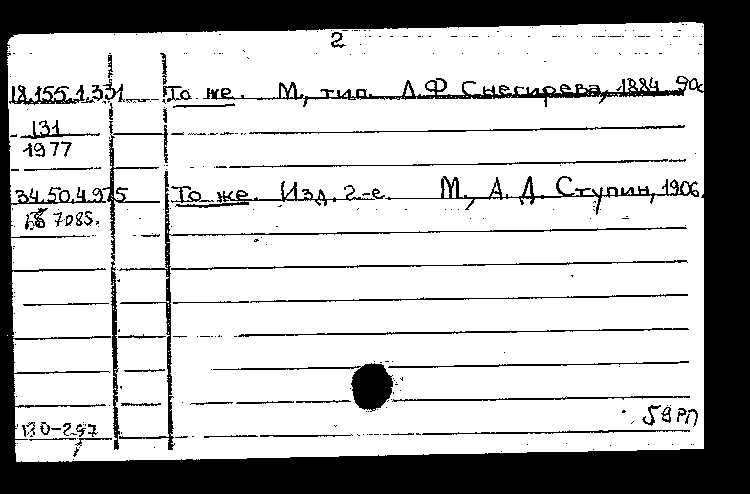 2
18.155.1.331 То же. М., тип. Л.Ф Снегирева, 1884
131
1977
34.50.4.975 То же. Изд. 2-е. М., А. Д. Ступин, 1906.
7085.
59РП
130-297